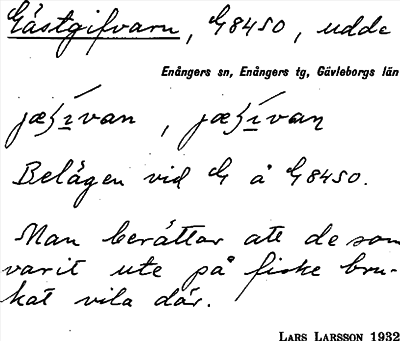 Gästgifvarn, G8450, udde
Enångers sn, Enångers tg, Gävleborgs län
Belägen vid G å G8450.
Man berättar att de som
varit ute på fiske bru-
kat vila där.
LARS LARSSON 1932